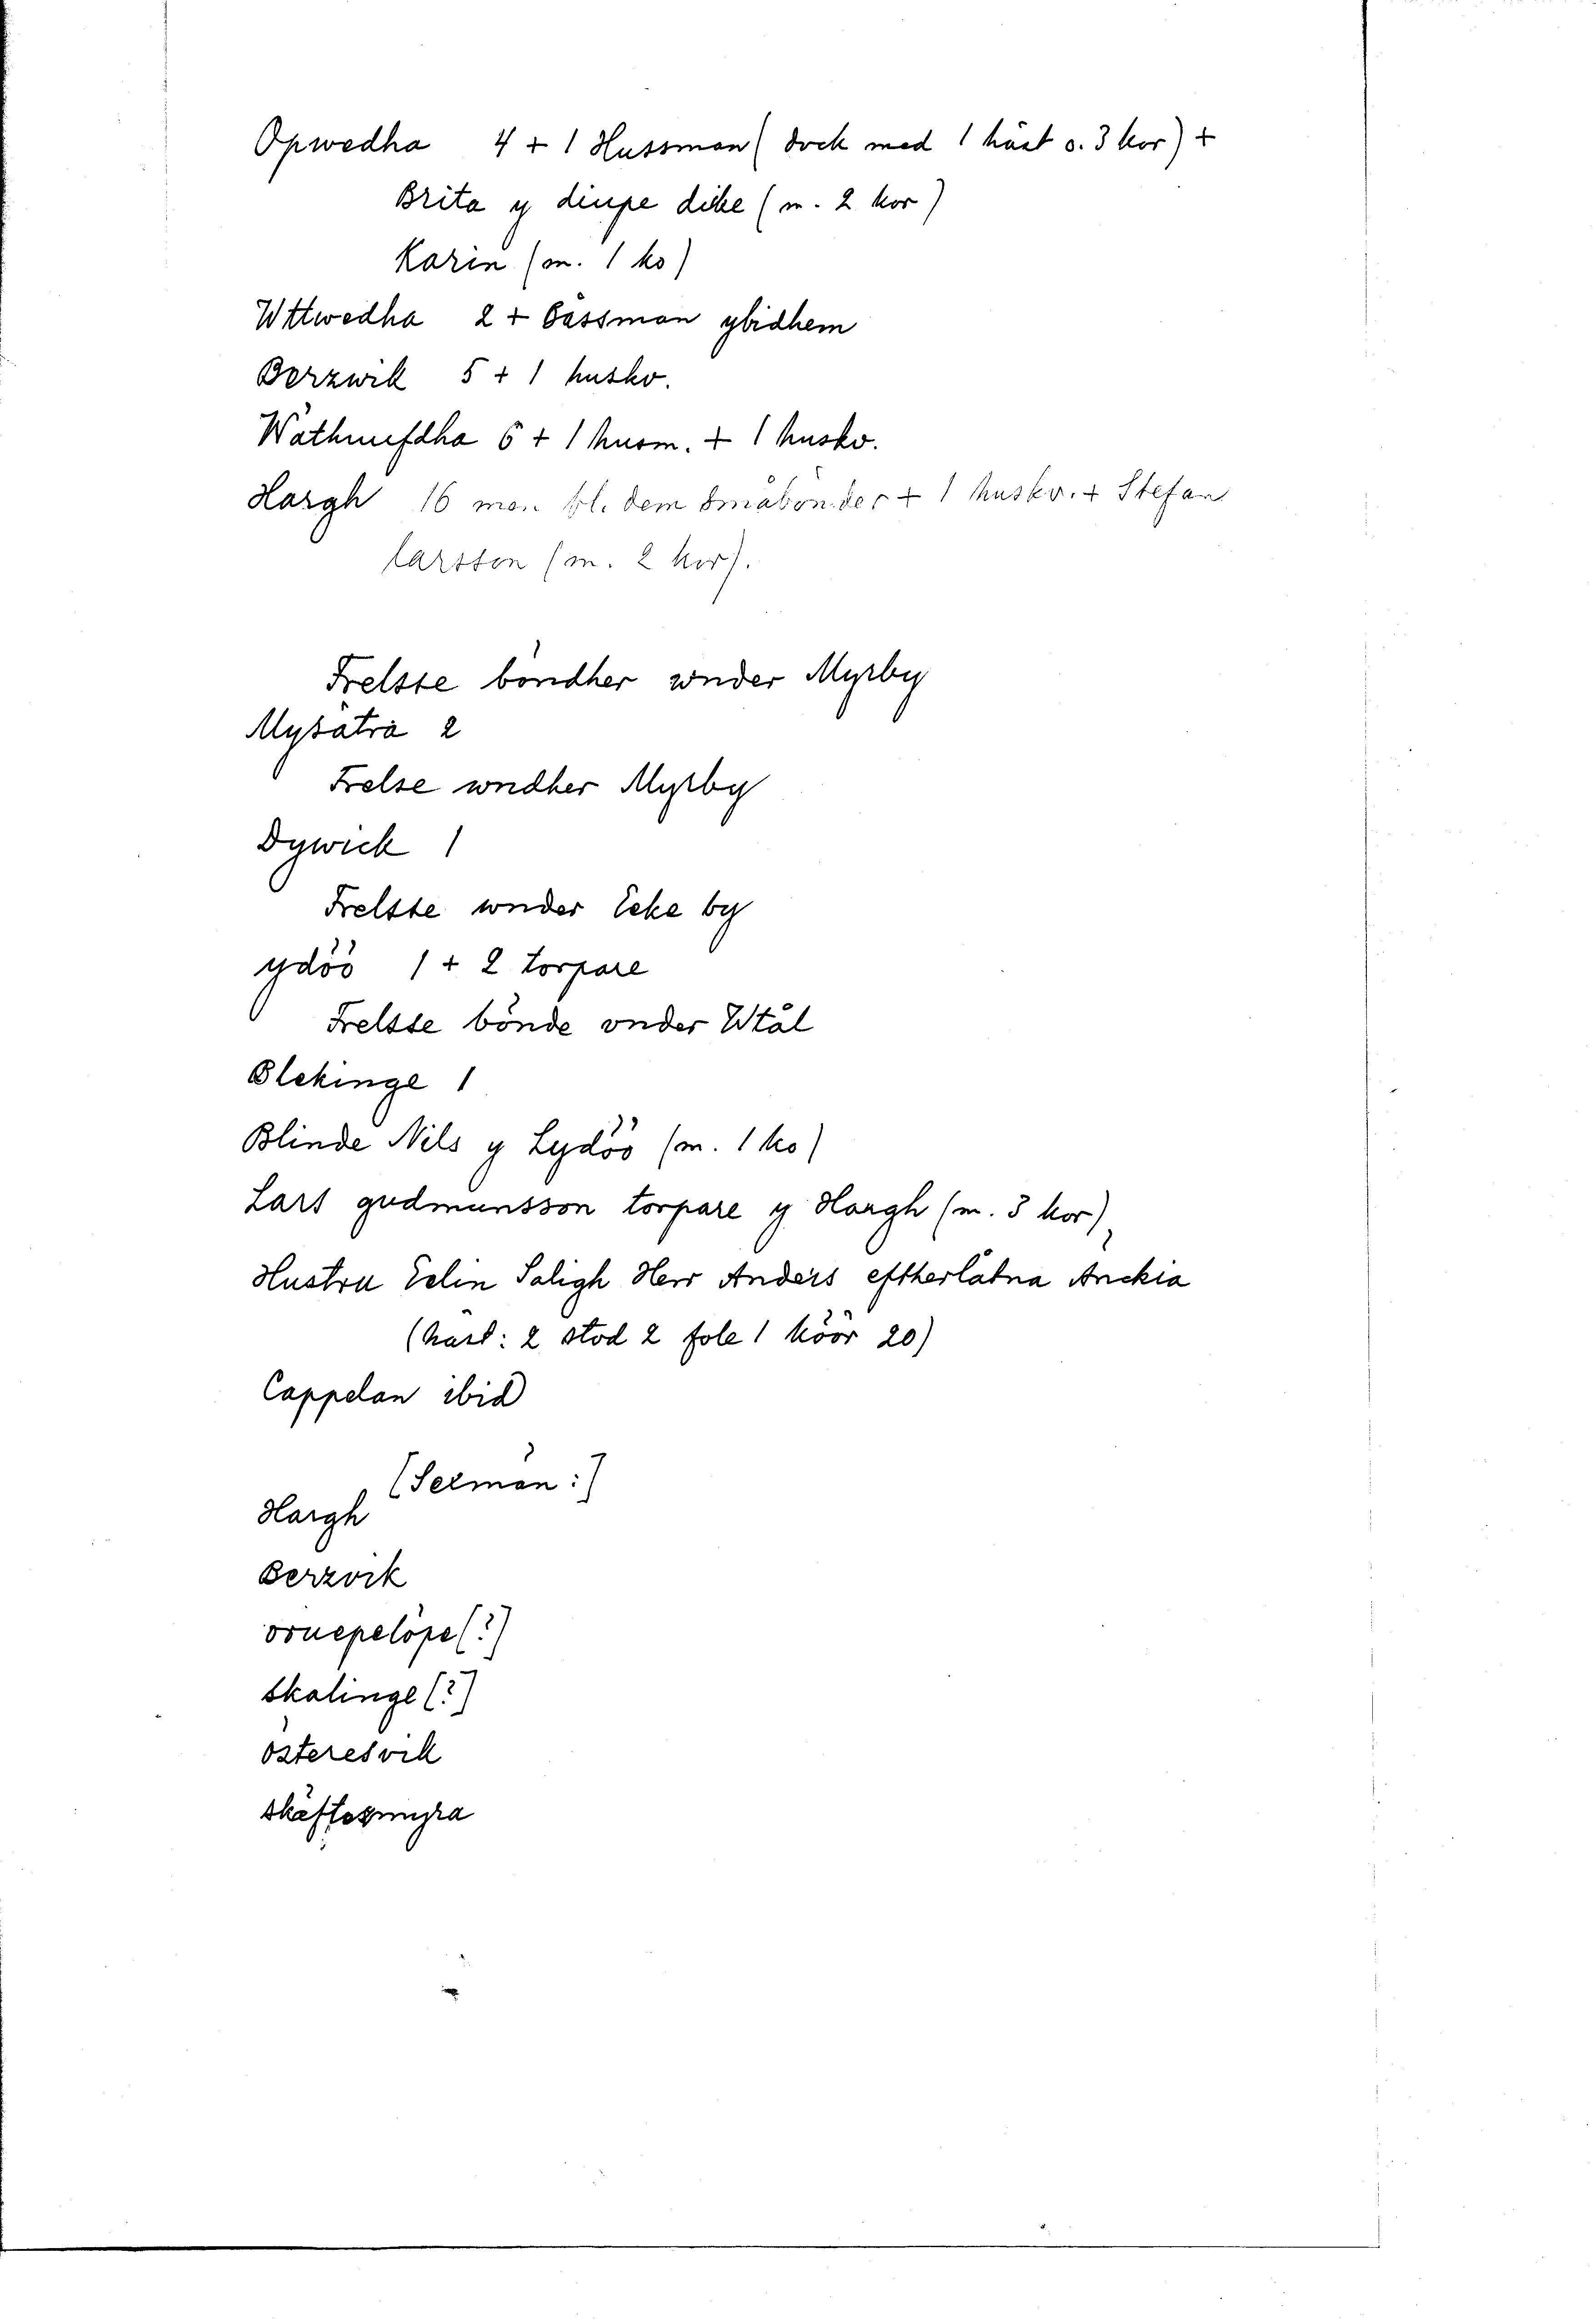 Opwedha 4 + 1 Hussman (dock med 1 häst o. 3 kor) +
Brita y diupe dike (m. 2 kor)
Karin (m. 1 ko)
Wttwedha 2 + Båssman ybidhem
Berzwik 5 + 1 huskv.
Wäthuufdha 6 + 1 husm. + 1 huskv.
Hargh 16 män bl. dem småbönder + 1 huskv. + Stefan
larsson (m. 2 kor).
Frelsse böndher wnder Myrby
Mysätra 2
Frelse wndher Myrby
Dywick 1
Frelsse wnder Ecke by
ydöö 1 + 2 torpare
Frelsse bönde vnder Wtål
Blekinge 1
Blinde Nils y Lydöö (m. 1 ko)
Lars gudmunsson torpare y Hargh (m. 3 kor)
Hustru Eelin Saligh Herr Anders eftherlåtna Anckia
(häst: 2 stod 2 fole 1 köör 20)
Cappelan ibid
[Sexmän:]
Hargh
Berzvik
oruepelöpe [?]
skalinge [?]
österesvik
skäftesmyra